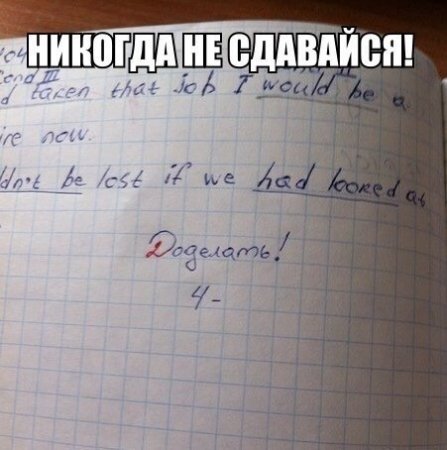 НИКОГДА НЕ СДАВАЙСЯ!
Cond III
d taken that job I would be a
ire now.
ldn't be lost if we had looked at
Доделать!
4-